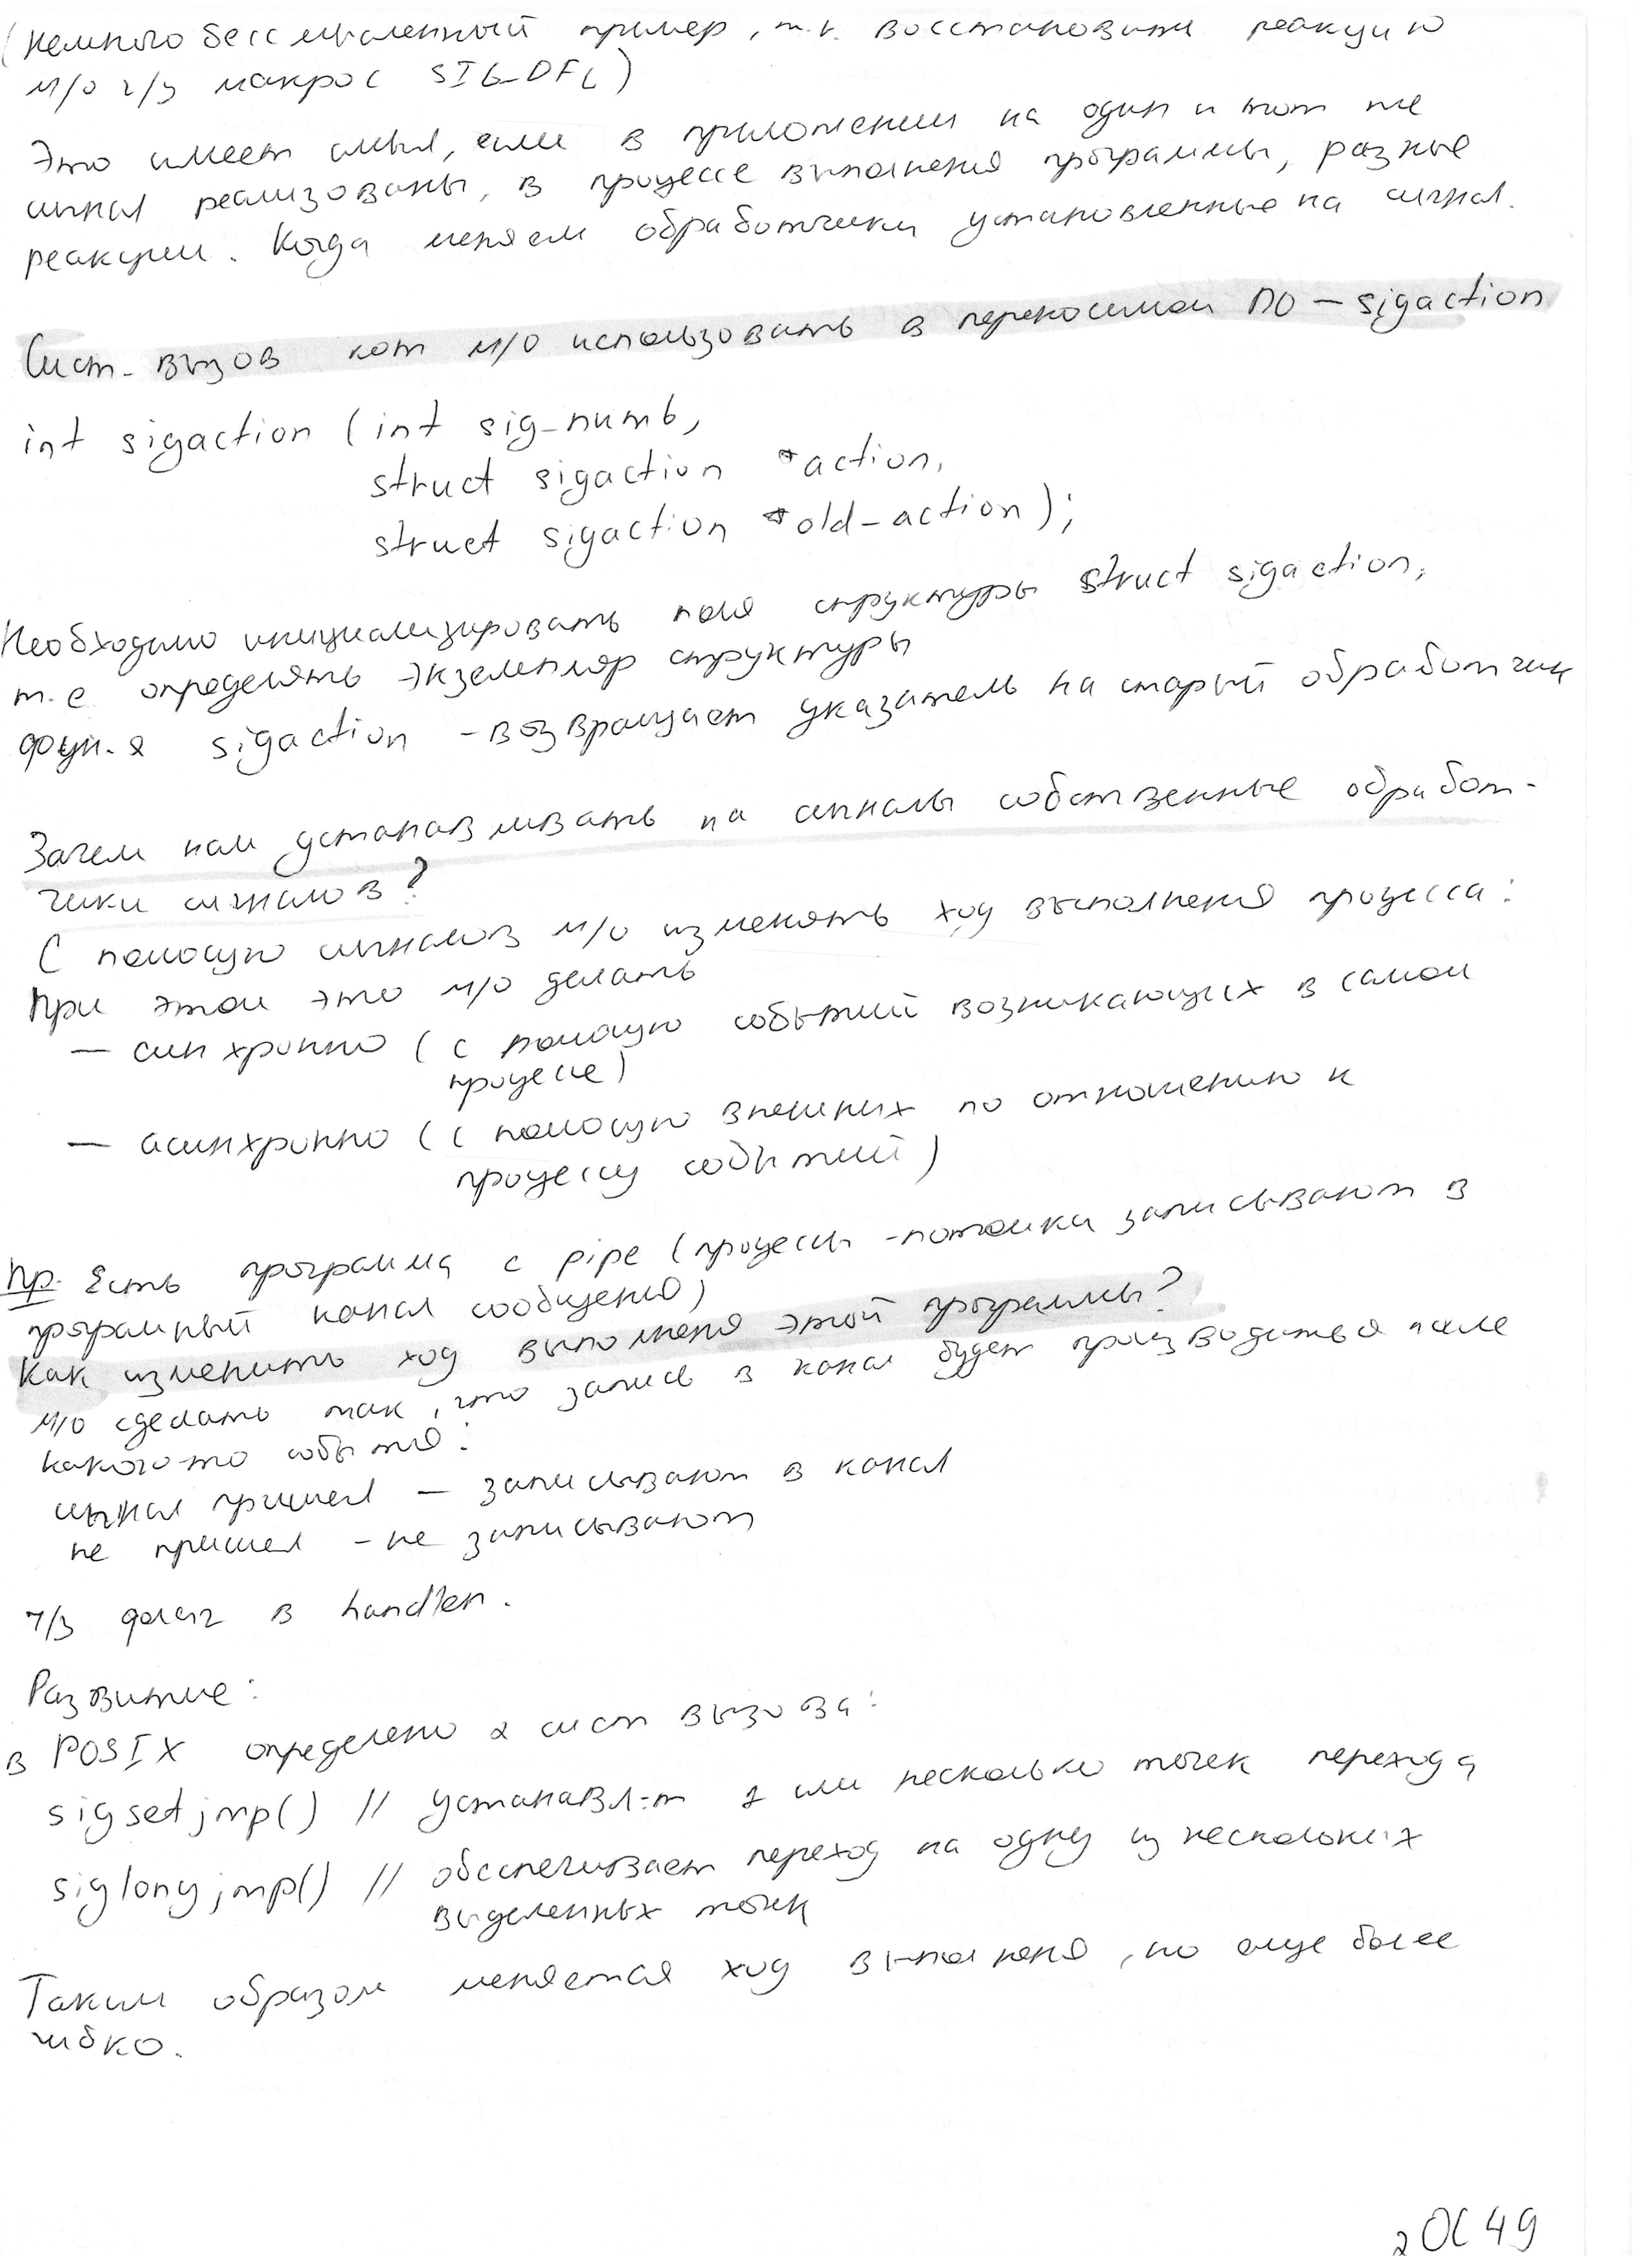 (немного бессмысленный пример, т.к. восстановить реакцию
м/о ч/з макрос SIG_DFL)
Это имеет смысл, если в приложении на один и тот же
сигнал реализованы, в процессе выполнения программы, разные
реакции. Когда меняем обработчики установленные на сигнал.
Сист. вызов кот м/о использовать в переносимом ПО — sigaction
int sigaction (int sig_numb,
struct sigaction *action,
struct sigaction *old_action);
Необходимо инициализировать поля структуры struct sigaction,
т.е определять экземпляр структуры
функ-я sigaction - возвращает указатель на старый обработчик
Зачем нам устанавливать на сигналы собственные обработ-
чики сигналов?
С помощью сигналов м/о изменять ход выполнения процесса:
При этом это м/о делать
— синхронно (с помощью событий возникающих в самом
процессе)
— асинхронно (с помощью внешних по отношению к
процессу событий)
Пр. Есть программа с pipe (процессы-потомки записывают в
програмный канал сообщения)
Как изменить ход выполнения этой программы?
м/о сделать так, что запись в канал будет производиться после
какого-то события:
сигнал пришел — записывают в канал
не пришел - не записывают
ч/з флаг в handler.
Развитие:
в POSIX определено 2 сист вызова:
sigsetjmp() // устанавл-т 1 или несколько точек перехода
siglongjmp() // обеспечивает переход на одну из нескольких
выделенных точек
Таким образом меняется ход выполнения, но еще более
гибко.
2 ОС 49